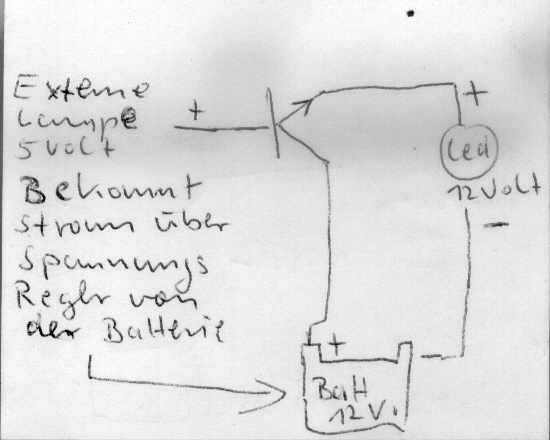 Externe
Lampe
5 Volt
Bekommt
Strom über
Spannungs
Reglr von
der Batterie
+
+
Led
12 Volt
-
+
-
Batt
12 V.